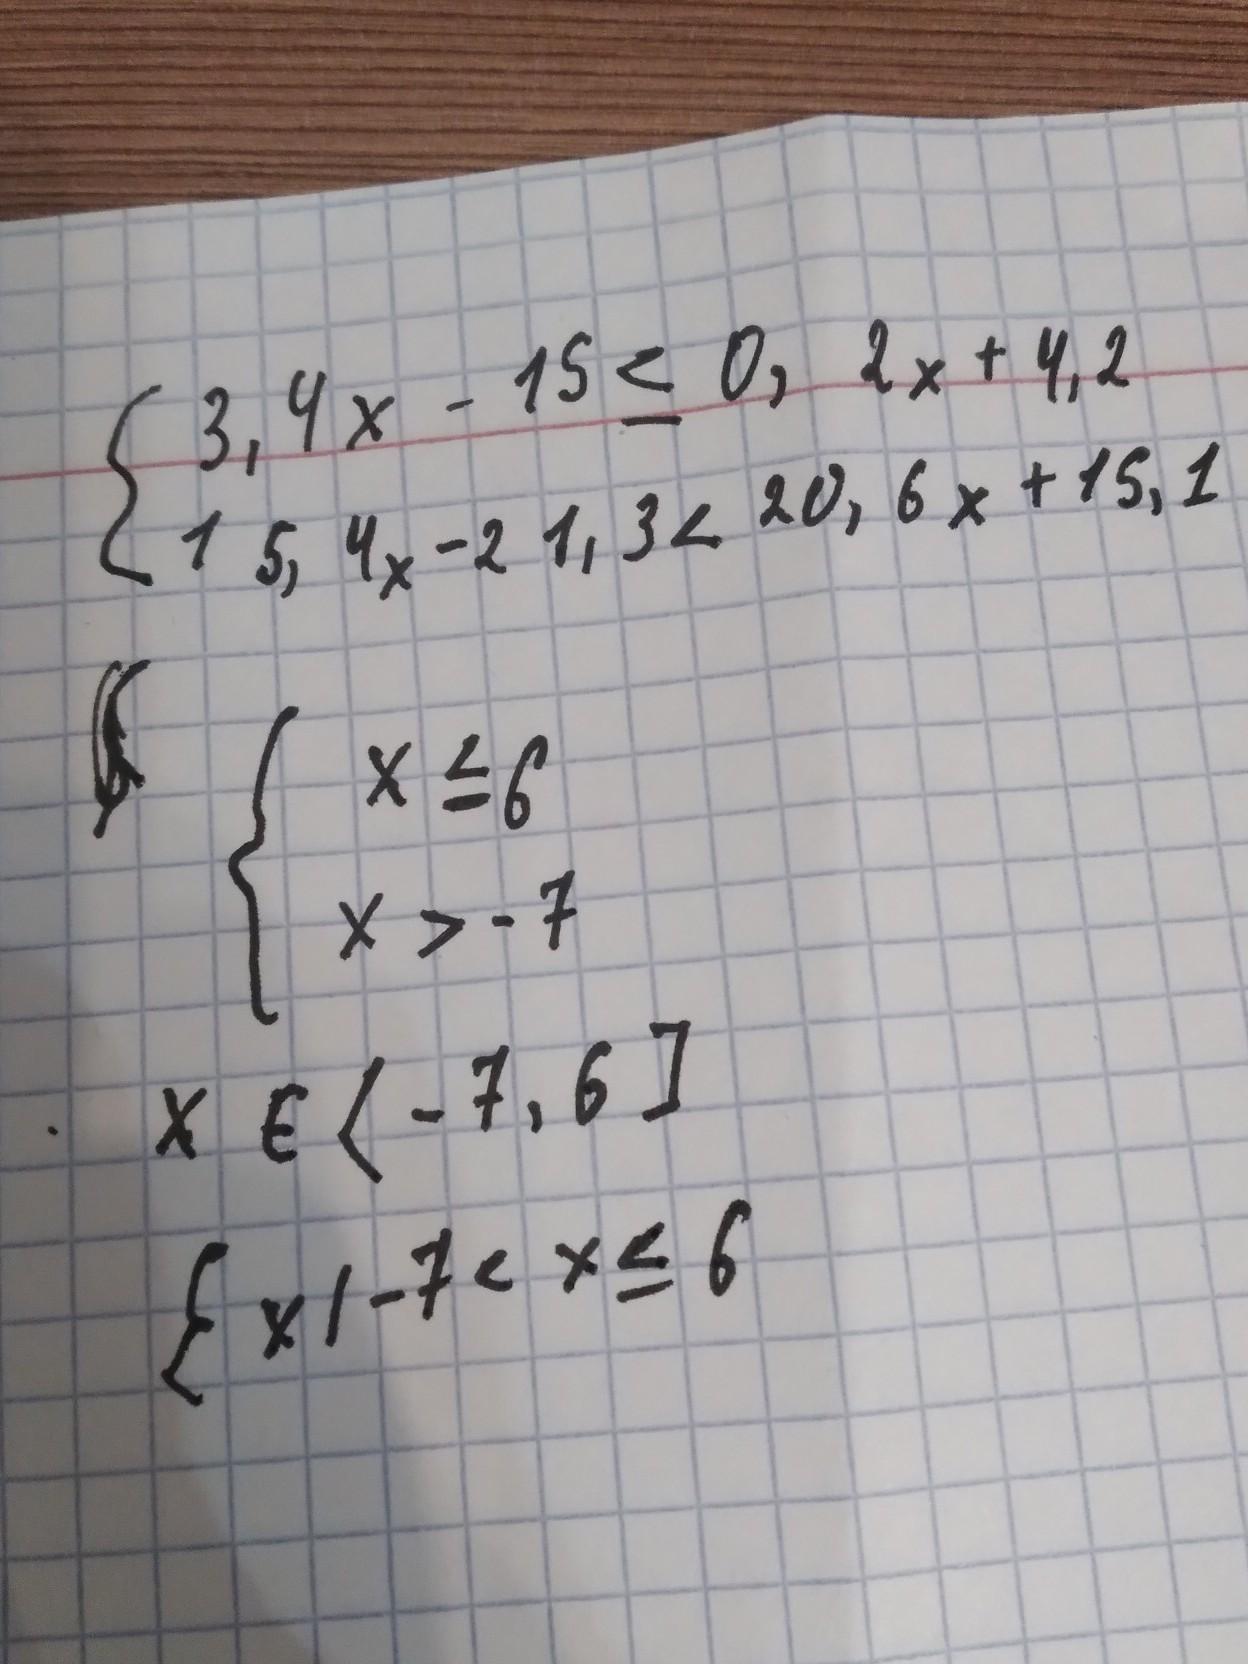 { 3,4x - 15 ≤ 0, 2x + 4,2
15,4x - 21,3 < 20,6x + 15,1
{ x ≤ 6
x > -7
x ∈ (-7, 6]
{ x | -7 < x ≤ 6